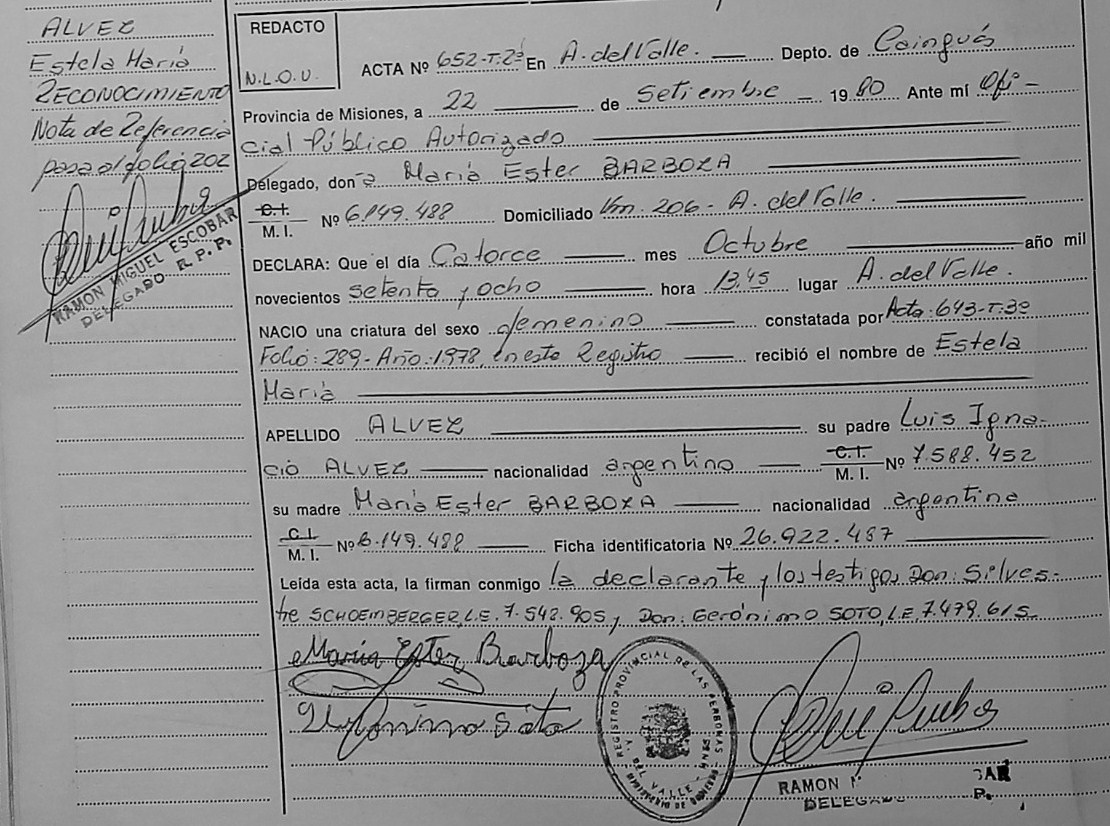 ALVEZ
Estela Mariá
RECONOCIMIENTO
Nota de Referencia
pasa al folio 202
RAMON MIGUEL ESCOBAR
DELEGADO R.P.P.
REDACTO
N.L.O.U.
ACTA Nº 652-T.2º En A. del Valle. Depto. de Cainguás
Provincia de Misiones, a 22 de Setiembre 1980 Ante mí Ofi-
cial Público Autorizado
Delegado, don a Mariá Ester BARBOZA
C.I.
M. I. Nº 6.149.488 Domiciliado Km. 206 - A. del Valle.
DECLARA: Que el día Catorce mes Octubre año mil
novecientos setenta y ocho hora 13,45 lugar A. del Valle.
NACIO una criatura del sexo femenino constatada por Acta: 643-T.3º
Folio: 289-Año: 1978, en este Registro recibió el nombre de Estela
Mariá
APELLIDO ALVEZ su padre Luis Igna-
cio ALVEZ nacionalidad argentino C.I. M. I. Nº 7.588.452
su madre Mariá Ester BARBOZA nacionalidad argentina
C.I.
M. I. Nº 6.149.488 Ficha identificatoria Nº 26.922.487
Leída esta acta, la firman conmigo la declarante y los testigos Don: Silves-
tre SCHOEMBERGER, L.E. 7.542.905, y Don: Gerónimo SOTO, L.E. 7.479.615.
María Ester Barboza
Gerónimo Soto
REGISTRO PROVINCIAL DE LAS PERSONAS
VALLE
RAMON
DELEGADO